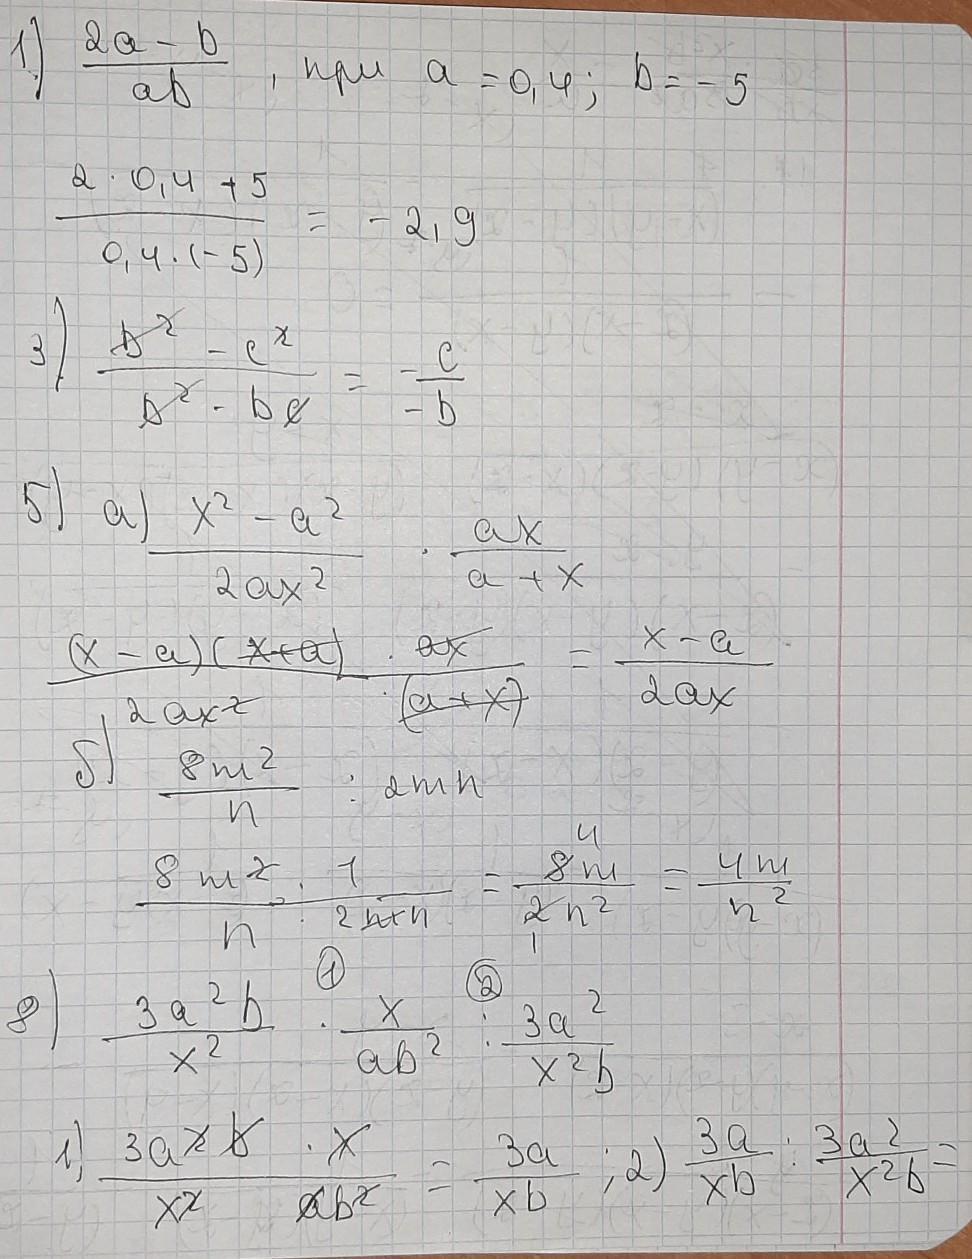 1) (2a - b)/(ab), при a = 0,4; b = -5
(2 · 0,4 + 5)/(0,4 · (-5)) = -2,9
3) (b² - c²)/(b² - bc) = (-c)/(-b)
5) а) (x² - a²)/(2ax²) · (ax)/(a + x)
((x - a)(x+a) · ax)/(2ax² · (a+x)) = (x - a)/(2ax)
б) (8m²)/n : 2mn
(8m² · 1)/(n · 2mn) = (8m)/(2n²) 4 1 = (4m)/(n²)
8) (3a²b)/(x²) · ① x/(ab²) : ② (3a²)/(x²b)
1) (3a²b · x)/(x² ab²) = (3a)/(xb) ; 2) (3a)/(xb) : (3a²)/(x²b) =